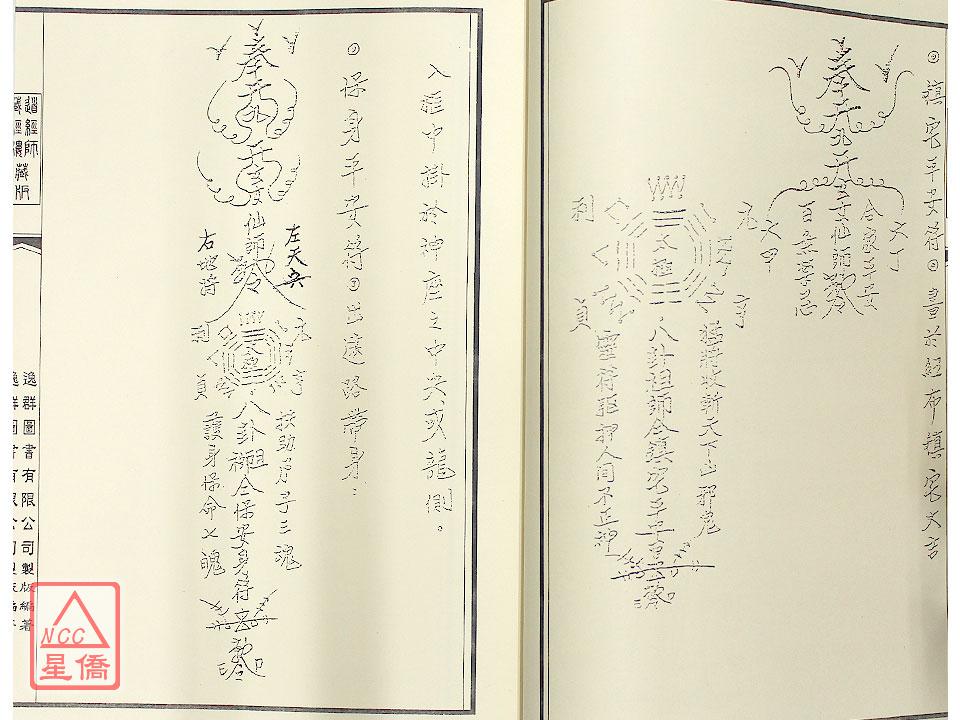 鎮宅平安符 畫於紅布鎮宅大吉
六丁
合家平安
奉
玄女仙師
百無禁忌
六甲
元
亨
利
貞
太極
猛將收斬天下凶邪鬼
八卦祖師令鎮宅平安
靈符驅押人間不正神
入極中掛於神座之中央或龍側。
保身平安符 出遠路帶身:
奉
仙師
左天兵
右地將
元
亨
利
貞
太極
扶助弟子三魂
八卦祖師令保安身符
護身保命七魄
道經師
藏版
逸群圖書有限公司製版編著
NCC
星僑